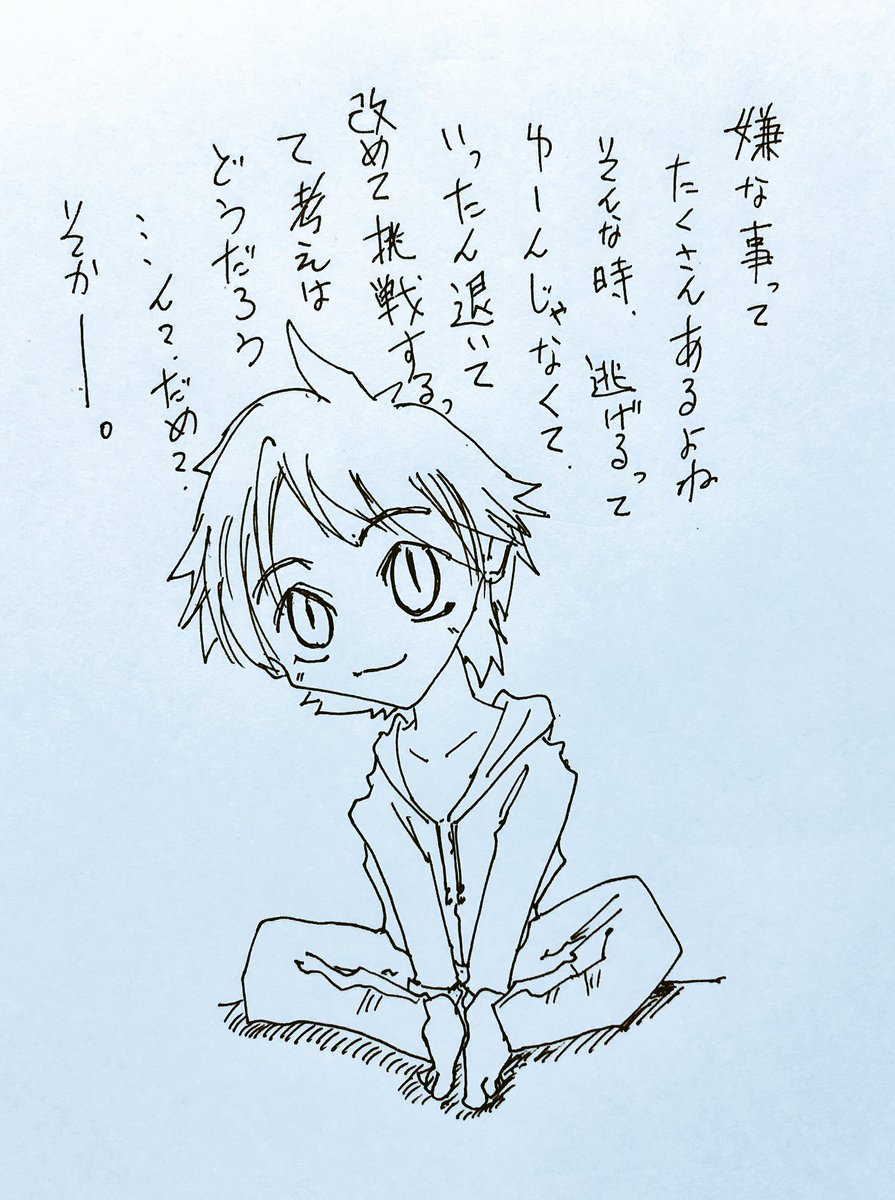 嫌な事って
たくさんあるよね
そんな時、逃げるって
ゆーんじゃなくて、
いったん退いて
改めて挑戦するっ
て考えは
どうだろう
…ん?だめ?
そかー。